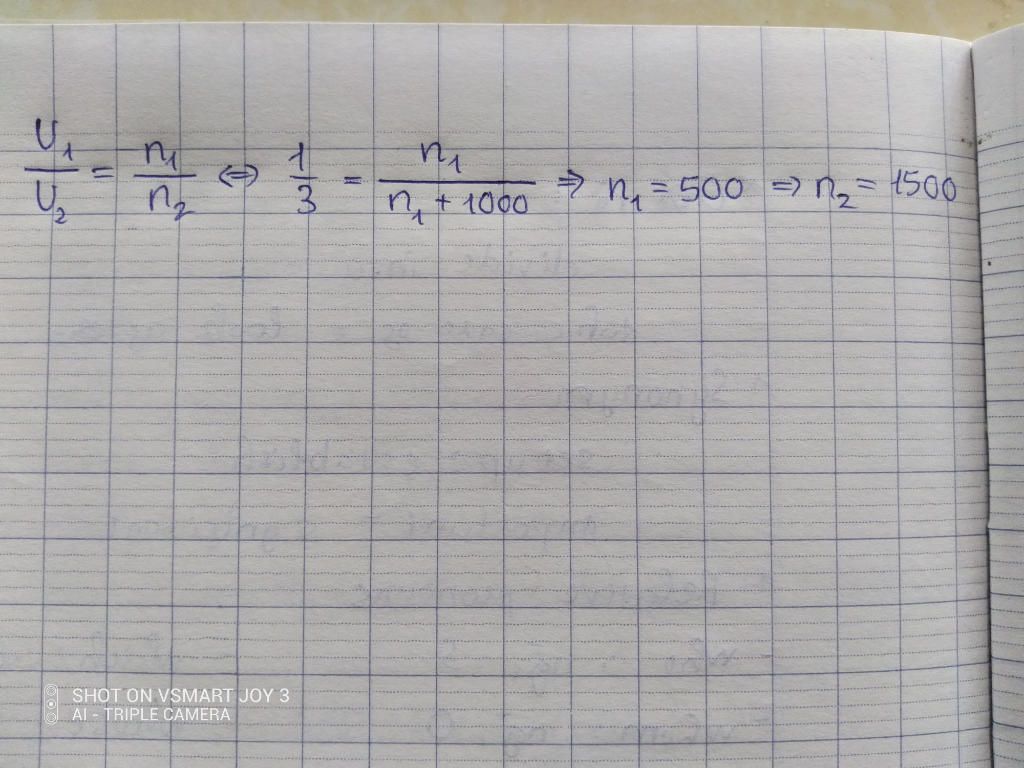 U₁/U₂ = n₁/n₂ ⇔ 1/3 = n₁/(n₁ + 1000) ⇒ n₁ = 500 ⇒ n₂ = 1500
SHOT ON VSMART JOY 3
AI - TRIPLE CAMERA